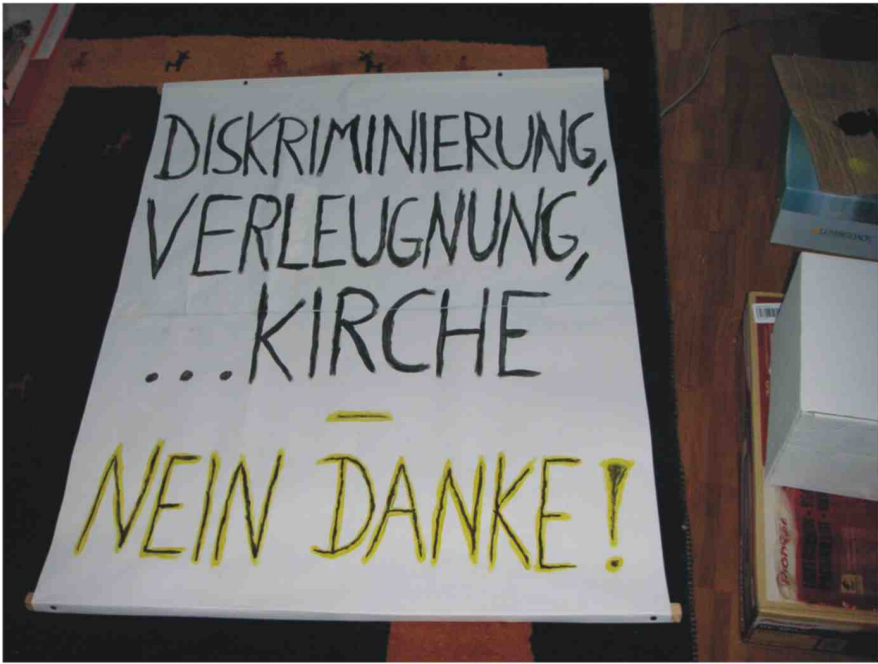 DISKRIMINIERUNG,
VERLEUGNUNG,
...KIRCHE
–
NEIN DANKE!